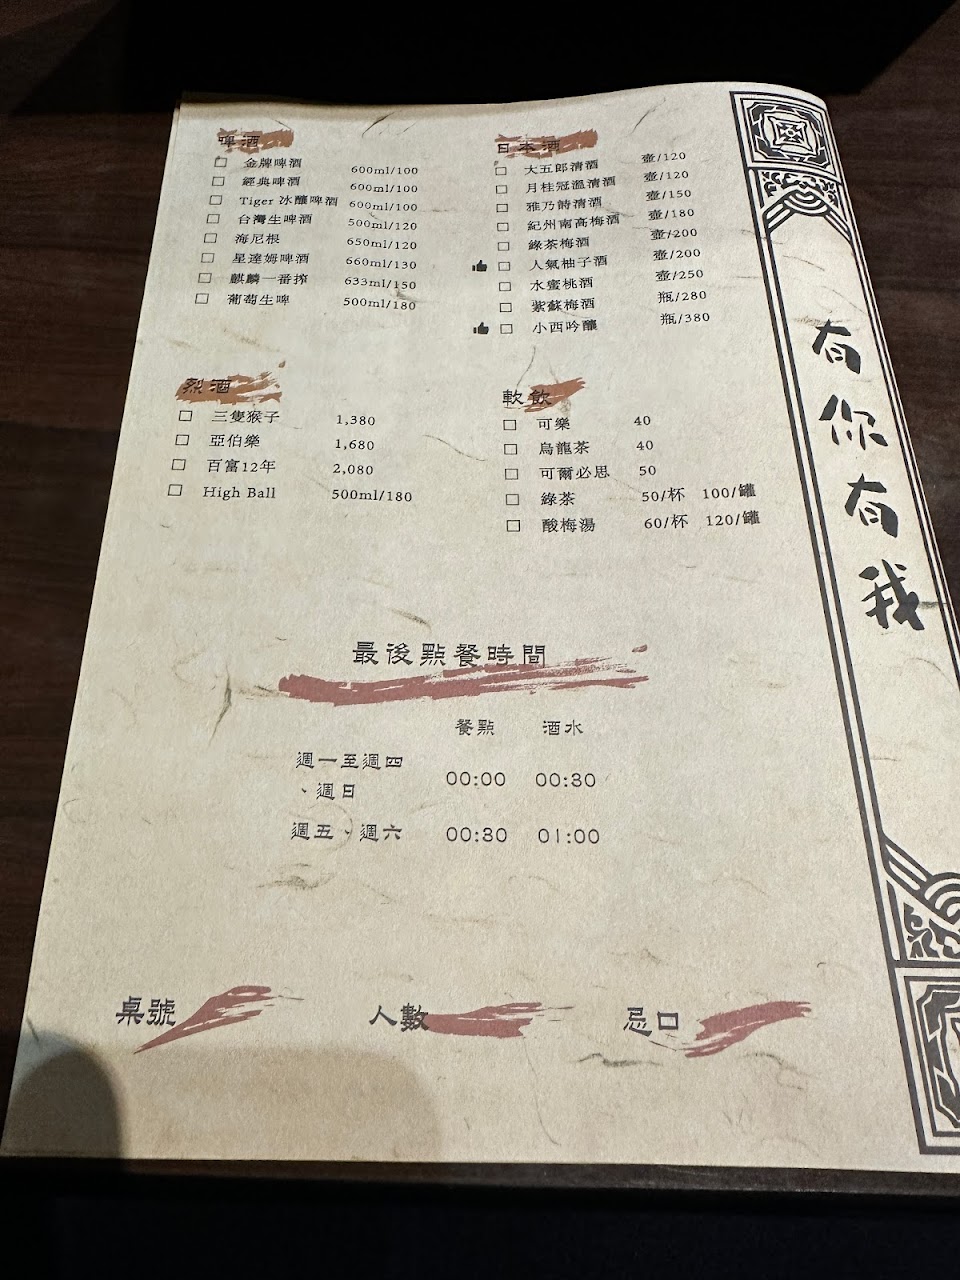 啤酒
金牌啤酒 600ml/100
經典啤酒 600ml/100
Tiger 冰釀啤酒 600ml/100
台灣生啤酒 500ml/120
海尼根 650ml/120
星達姆啤酒 660ml/130
麒麟一番搾 633ml/150
葡萄生啤 500ml/180
日本酒
大五郎清酒 壺/120
月桂冠溫清酒 壺/120
雅乃詩清酒 壺/150
紀州南高梅酒 壺/180
綠茶梅酒 壺/200
人氣柚子酒 壺/200
水蜜桃酒 壺/250
紫蘇梅酒 瓶/280
小西吟釀 瓶/380
烈酒
三隻猴子 1,380
亞伯樂 1,680
百富12年 2,080
High Ball 500ml/180
軟飲
可樂 40
烏龍茶 40
可爾必思 50
綠茶 50/杯 100/罐
酸梅湯 60/杯 120/罐
最後點餐時間
餐點 酒水
週一至週四
、週日 00:00 00:30
週五、週六 00:30 01:00
桌號 人數 忌口
有你有我